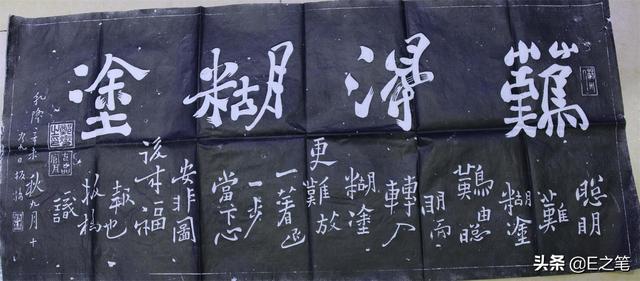 難得糊塗
聰明
難
糊塗
難由聰
明而
轉入
糊塗
更難放
一著退
一步
當下心
安非圖
後来福
報也
板橋
識
乾隆辛未秋九月十
九日板橋
头条 @E之笔